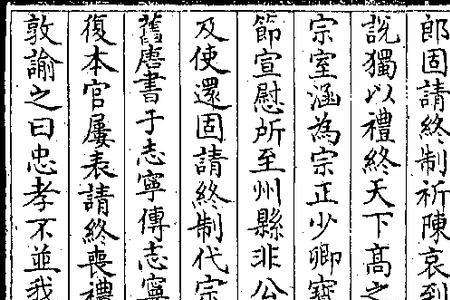 郎固請終制祈陳哀到
說獨以禮終天下高之
宗室涵為宗正少卿寶
節宣慰所至州縣非公
及使還固請終制代宗
舊唐書于志寧傳志寧
復本官屢表請終喪禮
敦諭之曰忠孝不並我